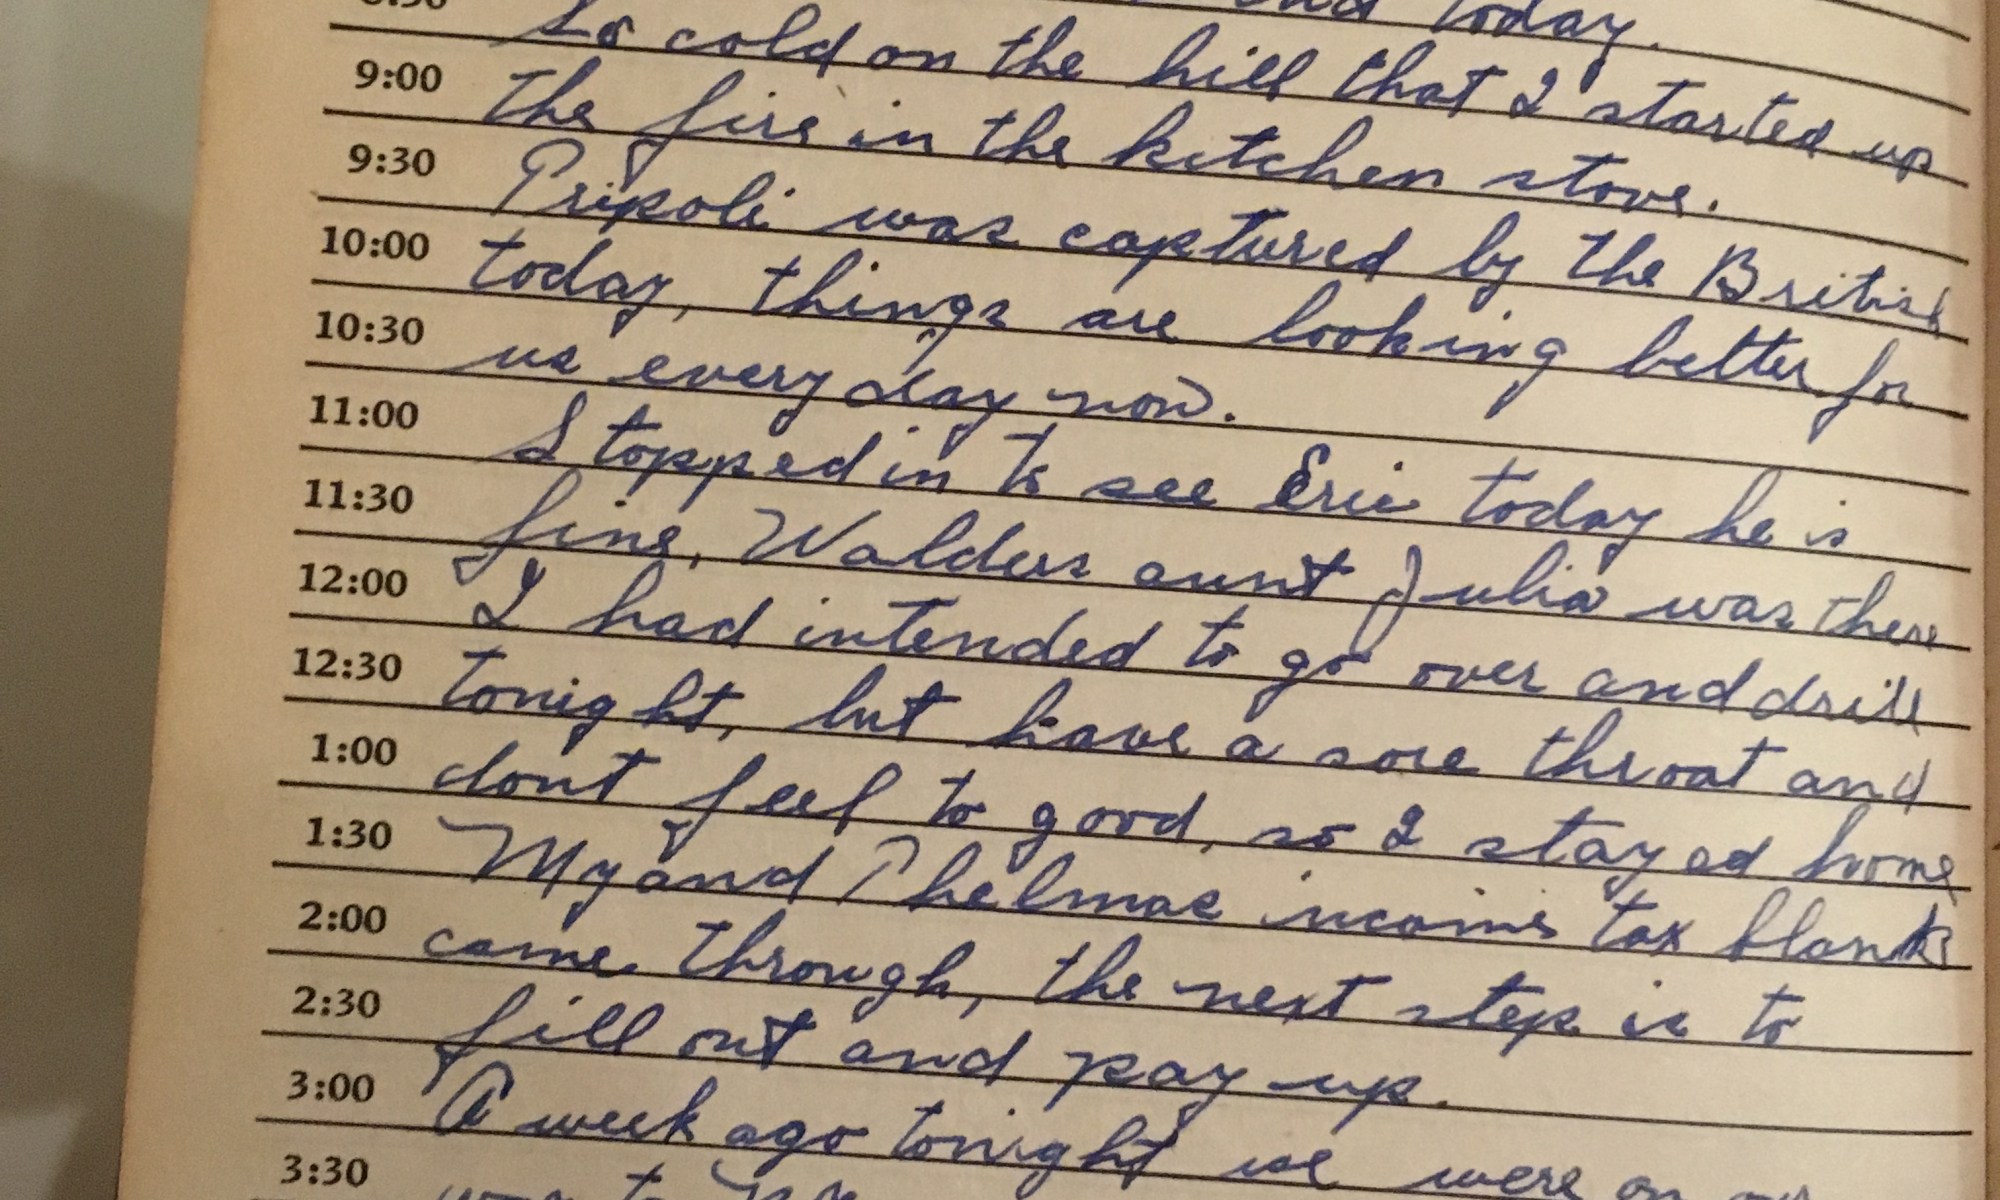 today.
9:00 So cold on the hill that I started up
9:30 the fire in the kitchen stove.
10:00 Tripoli was captured by the British
10:30 today, things are looking better for
11:00 us every day now.
11:30 Stopped in to see Eric today he is
12:00 fine, Walders aunt Julia was there
12:30 I had intended to go over and drill
1:00 tonight, but have a sore throat and
1:30 dont feel to good, so I stayed home
2:00 My and Thelmas income tax blanks
2:30 came through, the next step is to
3:00 fill out and pay up.
3:30 A week ago tonight we were on our